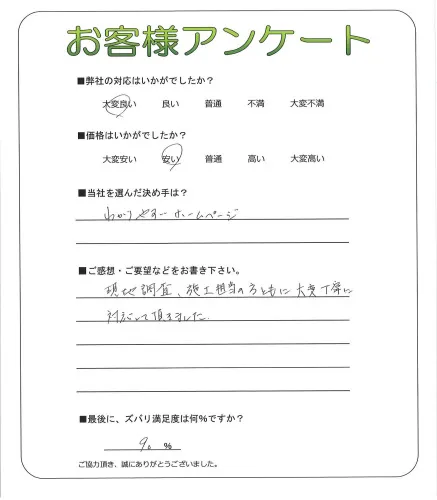 お客様アンケート
■弊社の対応はいかがでしたか？
大変良い 良い 普通 不満 大変不満
■価格はいかがでしたか？
大変安い 安い 普通 高い 大変高い
■当社を選んだ決め手は？
わかりやすいホームページ
■ご感想・ご要望などをお書き下さい。
現地調査、施工担当の方ともに大変丁寧に
対応して頂きました。
■最後に、ズバリ満足度は何％ですか？
90 ％
ご協力頂き、誠にありがとうございました。